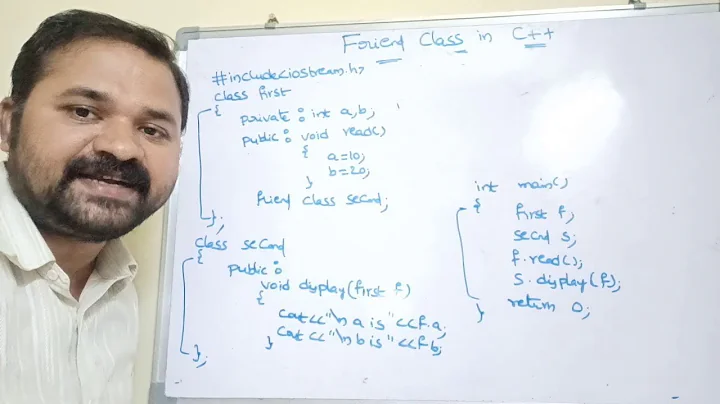 Friend Class in C++
#include<iostream.h>
class first
{
private : int a,b;
public : void read()
{
a=10;
b=20;
}
friend class second;
};
class second
{
public :
void display(first f)
{
cout<<"\n a is "<<f.a;
cout<<"\n b is "<<f.b;
}
};
int main()
{
first f;
second s;
f.read();
s.display(f);
return 0;
}